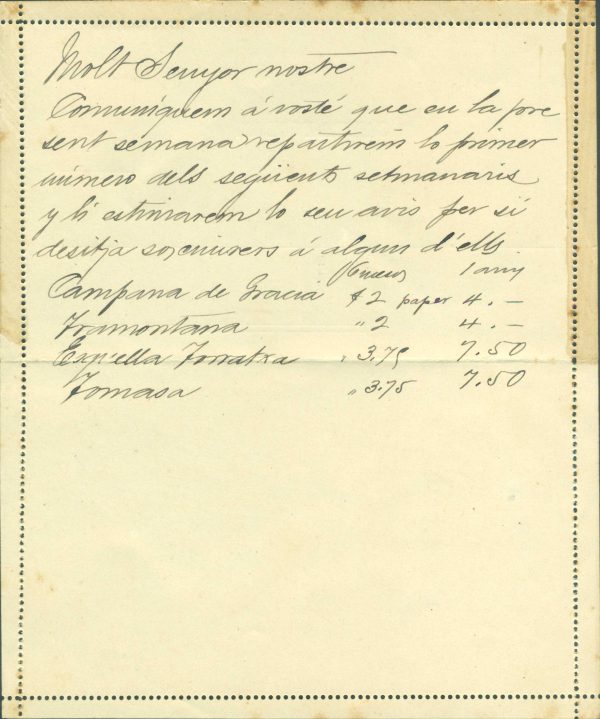 Molt Senyor nostre
Comuniquem á vosté que en la pre
sent semana repartirém lo primer
número dels següents setmanaris
y li estimarem lo seu avis per si
desitja á algun d'ells.
6 mesos 1 any
Campana de Gracia $2 paper 4.-
Tramontana " 2 4.-
Esquella Torratxa " 3.75 7.50
Tomasa " 3.75 7.50